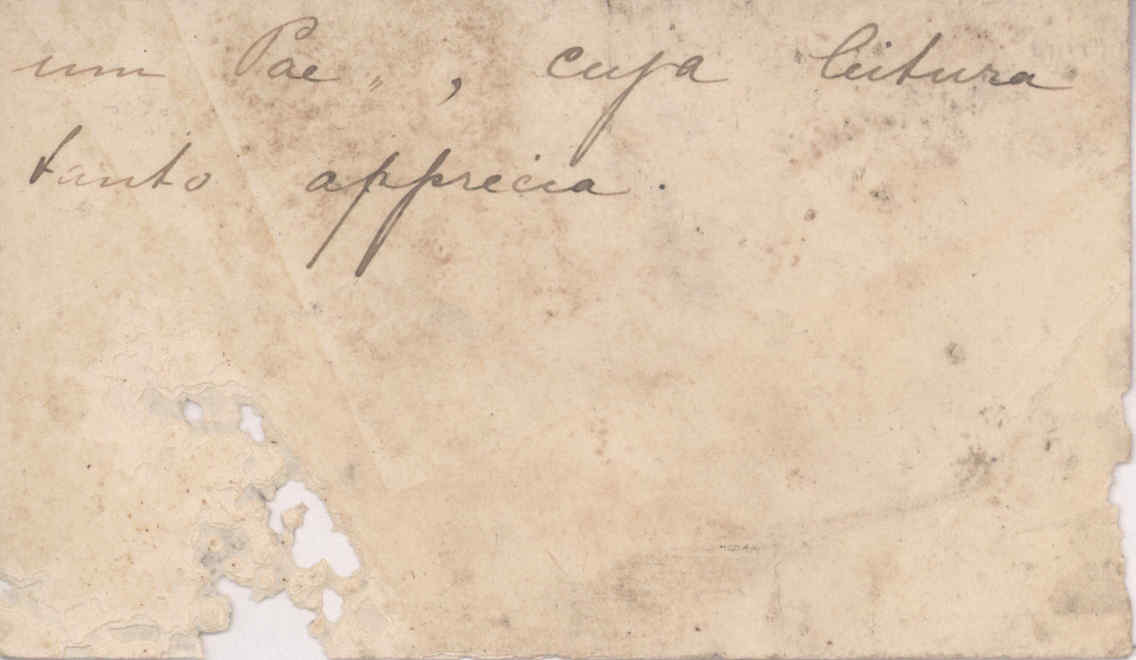 um Pae„, cuja leitura
tanto apprecia.